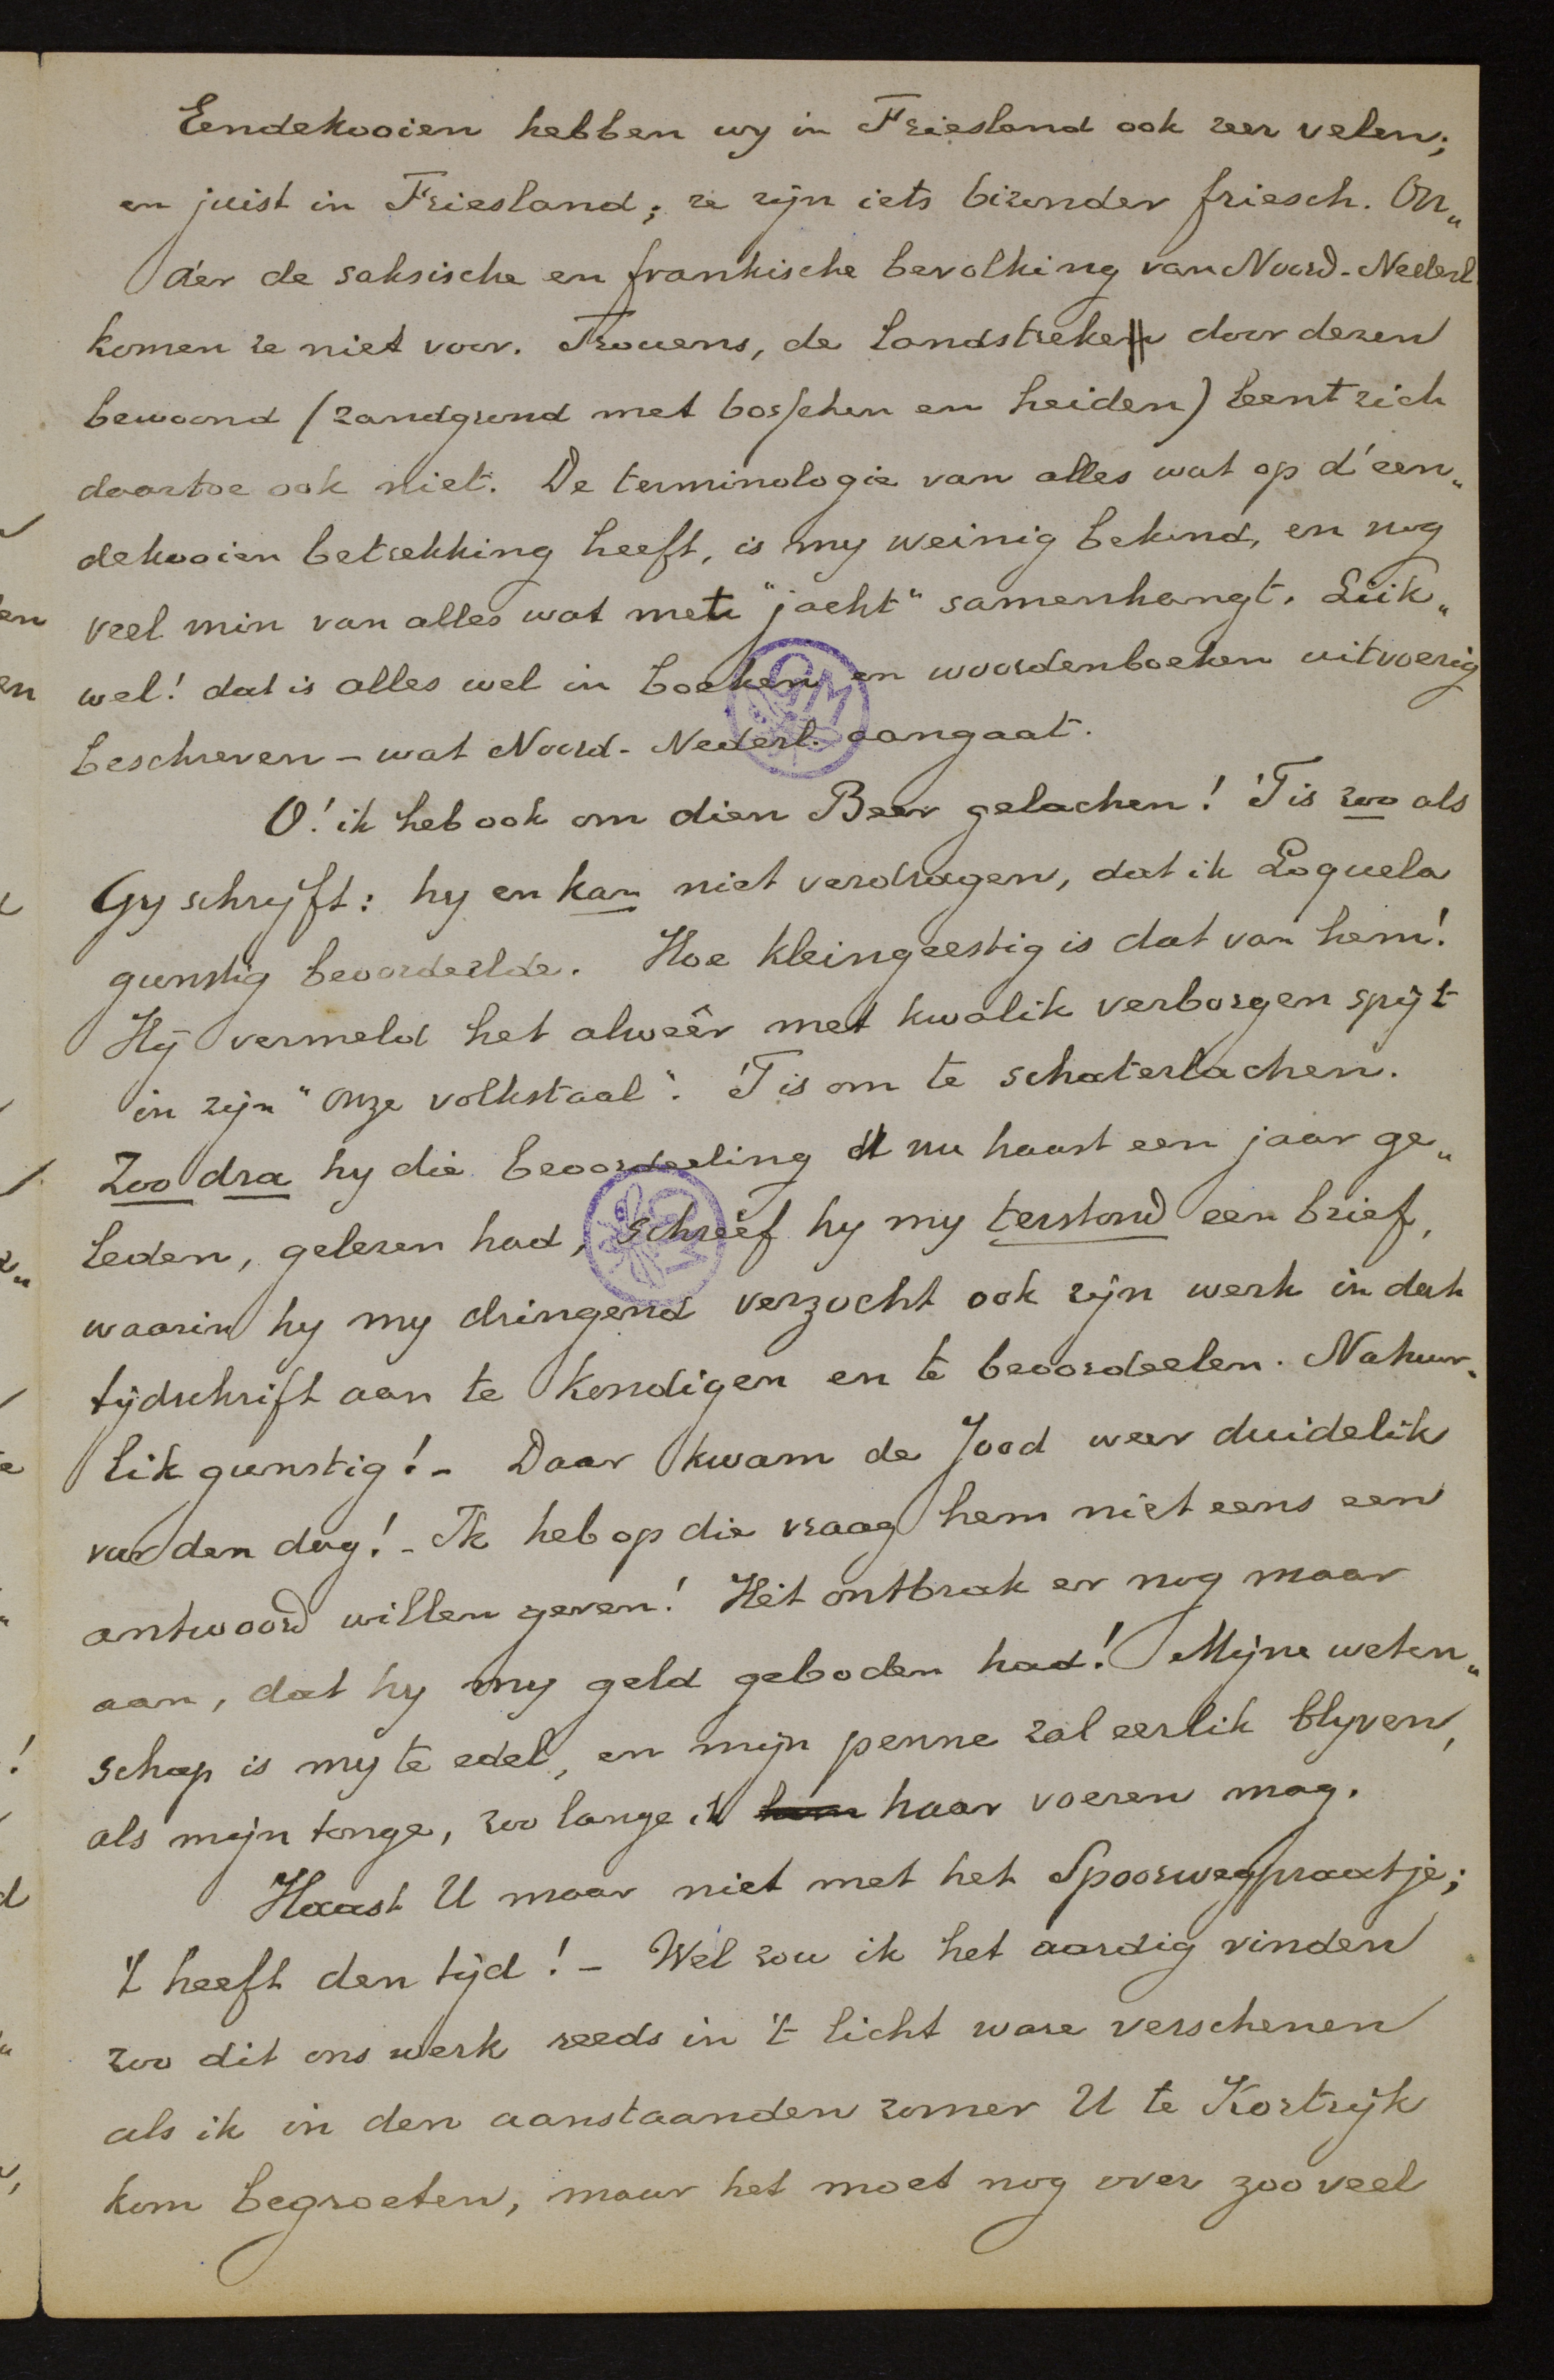 Eendekooien hebben wy in Friesland ook zeer velen;
en juist in Friesland; ze zijn iets bizonder friesch. On„
der de saksische en frankische bevolking van Noord-Nederl.
komen ze niet voor. Trouens, de landstreken door dezen
bewoond (zandgrond met bosschen en heiden) leent zich
daartoe ook niet. De terminologie van alles wat op d'een„
dekooien betrekking heeft, is my weinig bekend, en nog
veel min van alles wat met "jacht" samenhangt. Liik„
wel! dat is alles wel in boeken en woordenboeken uitvoerig
beschreven - wat Noord-Nederl. aangaat.
O! ik heb ook om dien Beer gelachen! 'T is zoo als
Gy schryft: hy en kan niet verdragen, dat ik Loquela
gunstig beoordeelde. Hoe kleingeestig is dat van hem!
Hij vermeld het alweêr met kwalik verborgen spijt
in zijn "Onze volkstaal". 'T is om te schaterlachen.
Zoo dra hy die beoordeeling nu haast een jaar ge„
leden, gelezen had, schreef hy my terstond een brief,
waarin hy my dringend verzocht ook zijn werk in dat
tijdschrift aan te kondigen en te beoordeelen. Natuur„
lik gunstig! - Daar kwam de Jood weer duidelik
voor den dag! - Ik heb op die vraag hem niet eens een
antwoord willen geven! Het ontbrak er nog maar
aan, dat hy my geld geboden had! Mijne weten„
schap is my te edel, en mijn penne zal eerlik blyven,
als mijn tonge, zoo lange ik haar voeren mag.
Haast U maar niet met het Spoorwegpraatje;
't heeft den tijd! - Wel zou ik het aardig vinden
zoo dit ons werk reeds in 't licht ware verschenen
als ik in den aanstaanden zomer U te Kortrijk
kom begroeten, maar het moet nog over zoo veel